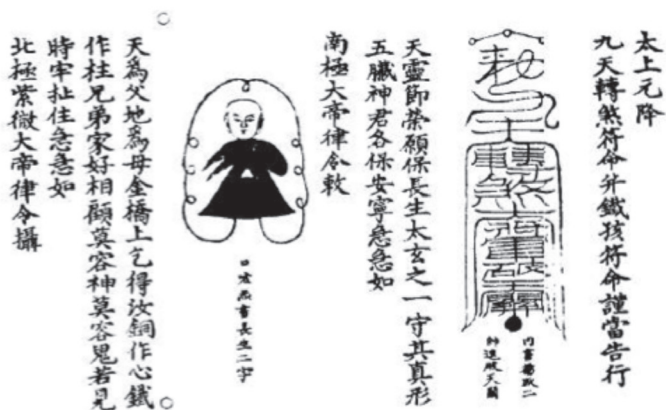 太上元降
九天轉煞符命并鐵孩符命謹當告行
內書二
帥進破天關
天靈節榮願保長生太玄之一守其真形
五臟神君各保安寧急急如
南極大帝律令敕
口書長生二字
天為父地為母金橋上乞得汝銅作心鐵
作柱兄弟家好相顧莫容神莫容鬼若見
時牢扯住急急如
北極紫微大帝律令攝